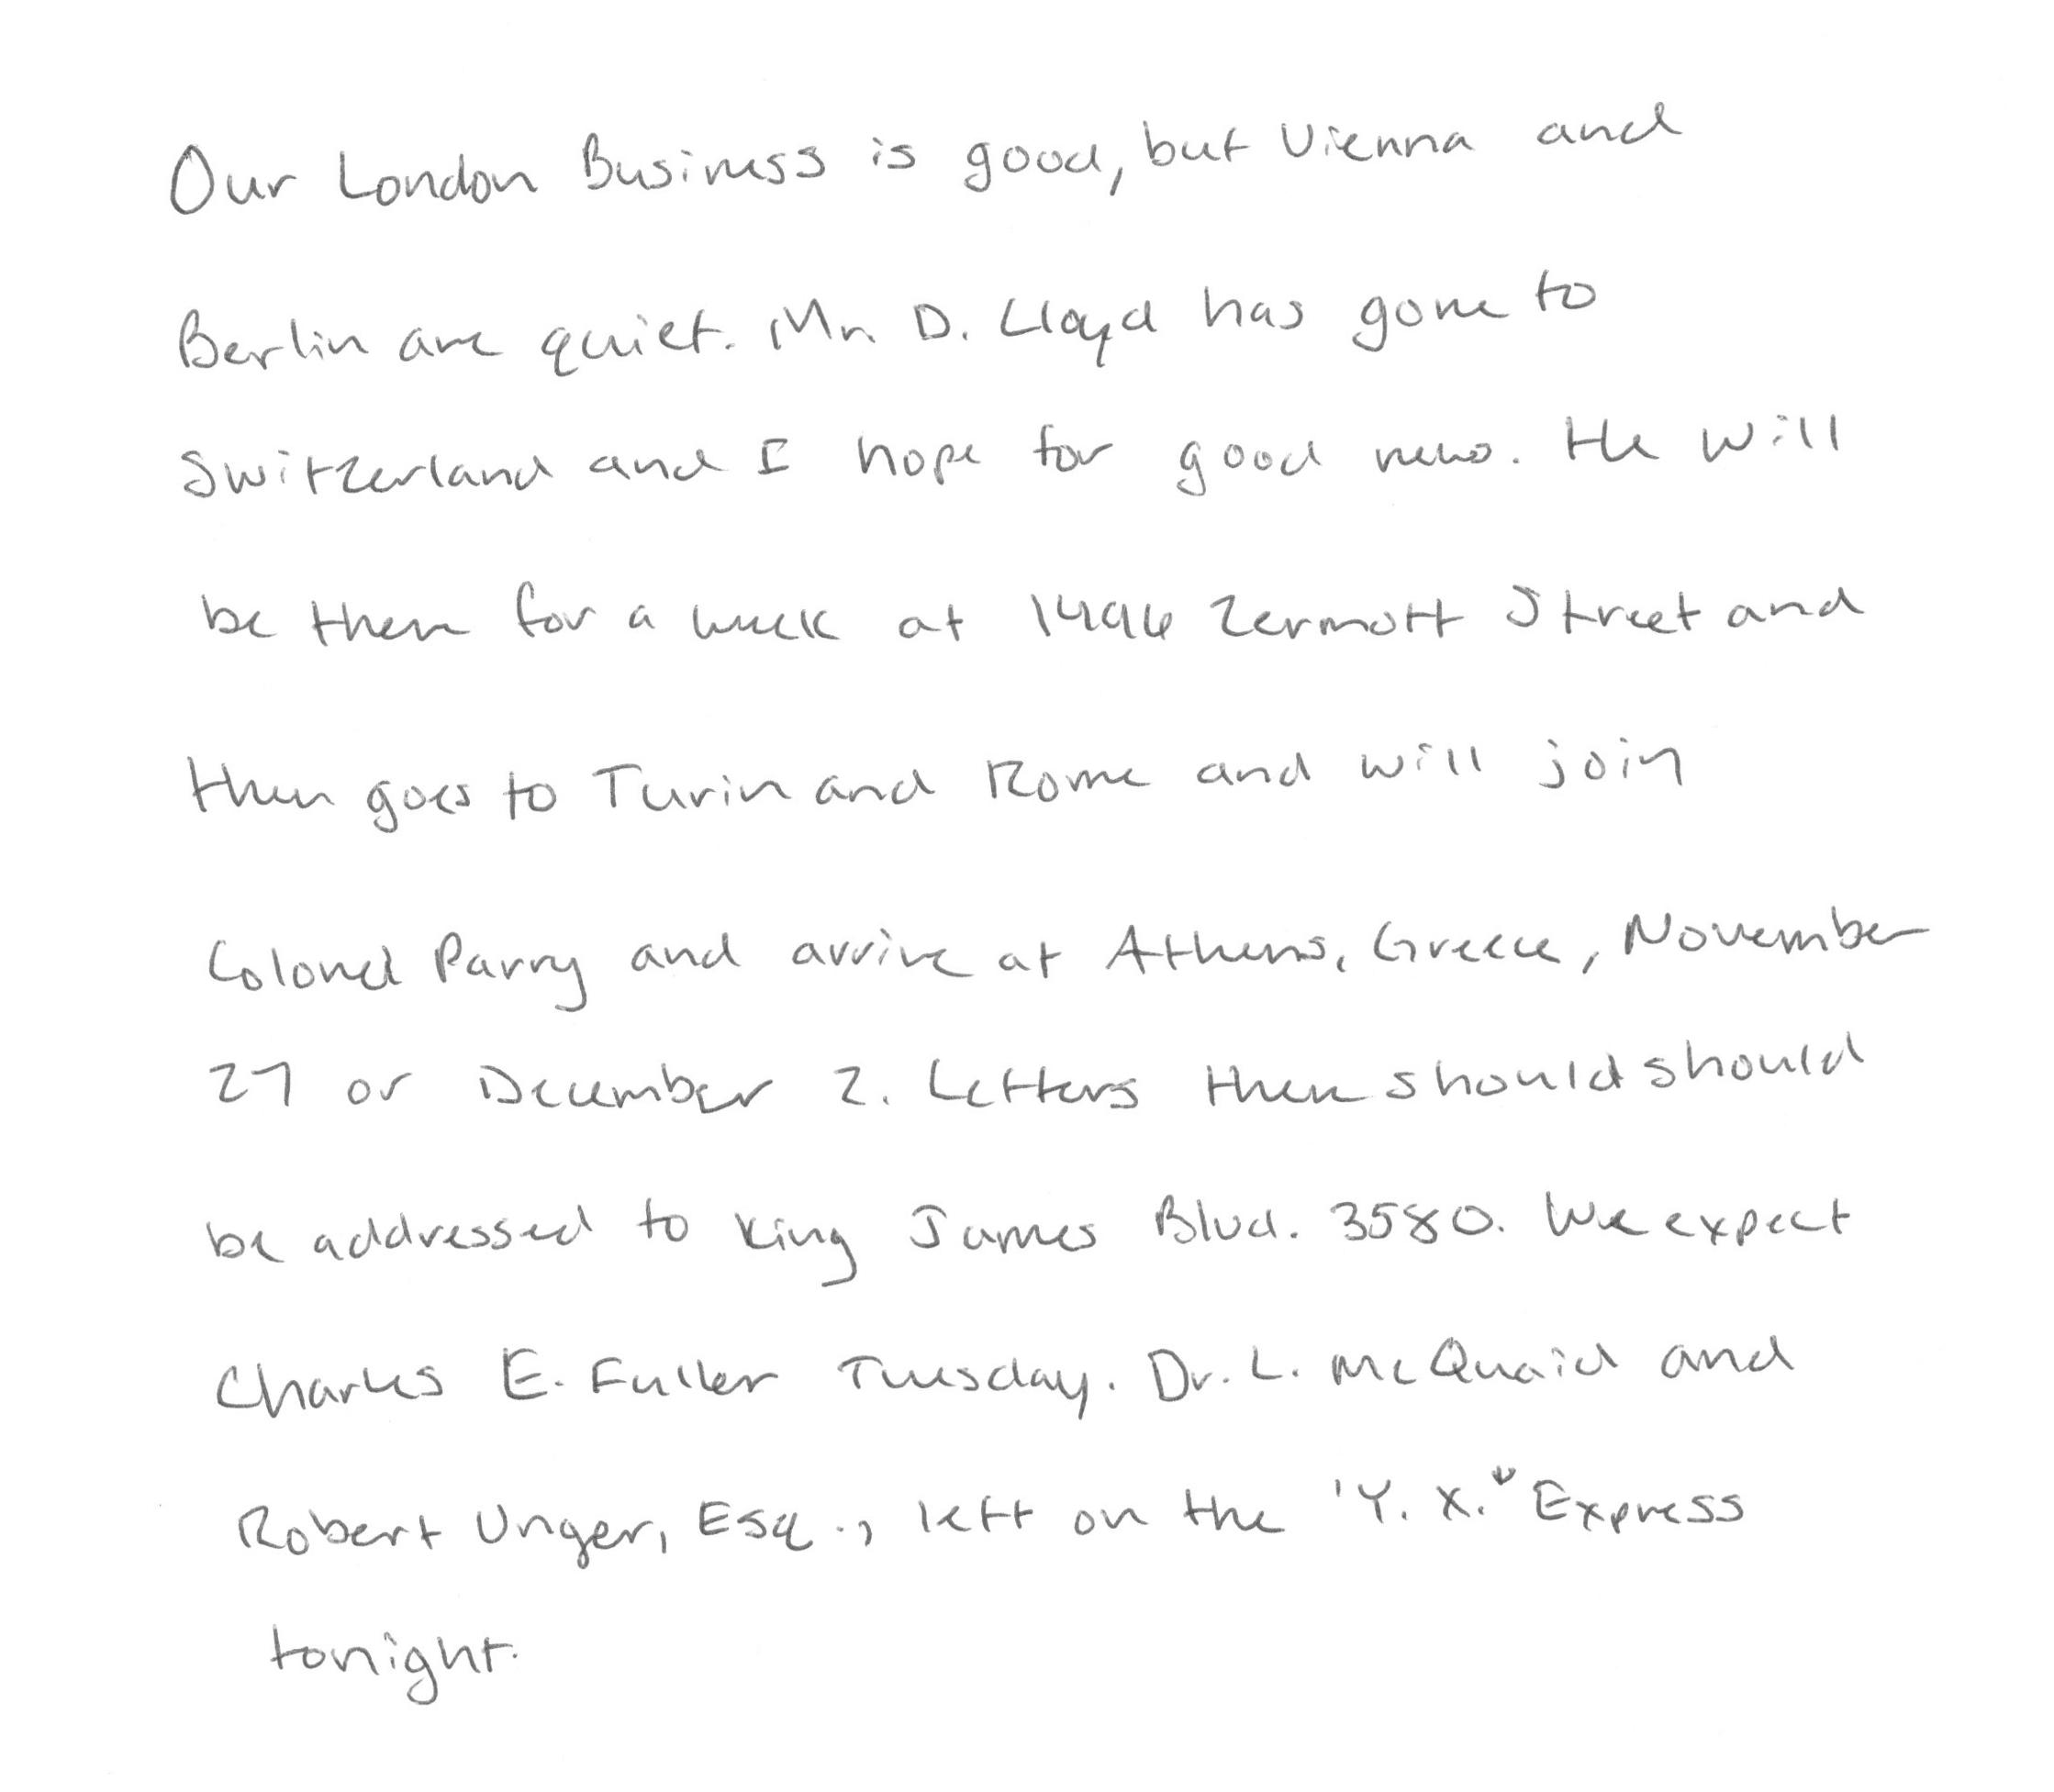 Our London Business is good, but Vienna and
Berlin are quiet. Mr. D. Lloyd has gone to
Switzerland and I hope for good news. He will
be there for a week at 1496 Zermott Street and
then goes to Turin and Rome and will join
Colonel Parry and arrive at Athens, Greece, November
27 or December 2. Letters there should should
be addressed to King James Blvd. 3580. We expect
Charles E. Fuller Tuesday. Dr. L. McQuaid and
Robert Unger, Esq., left on the 'Y. X." Express
tonight.